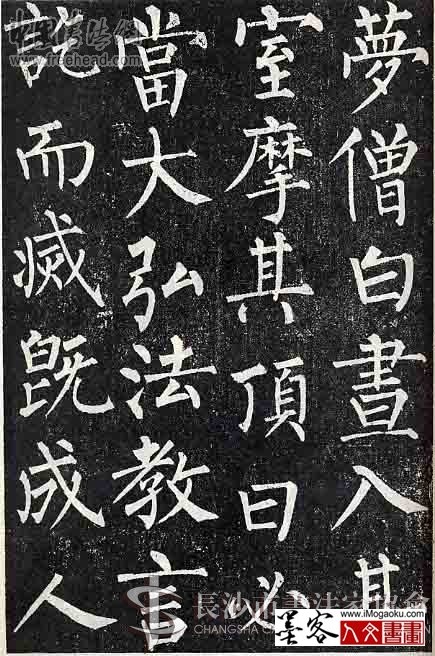 夢僧白晝入其
室摩其頂曰必
當大弘法教言
訖而滅旣成人
www.freehead.com
長沙市書法家協會
CHANGSHA CA
www.iMogaoku.com
墨客